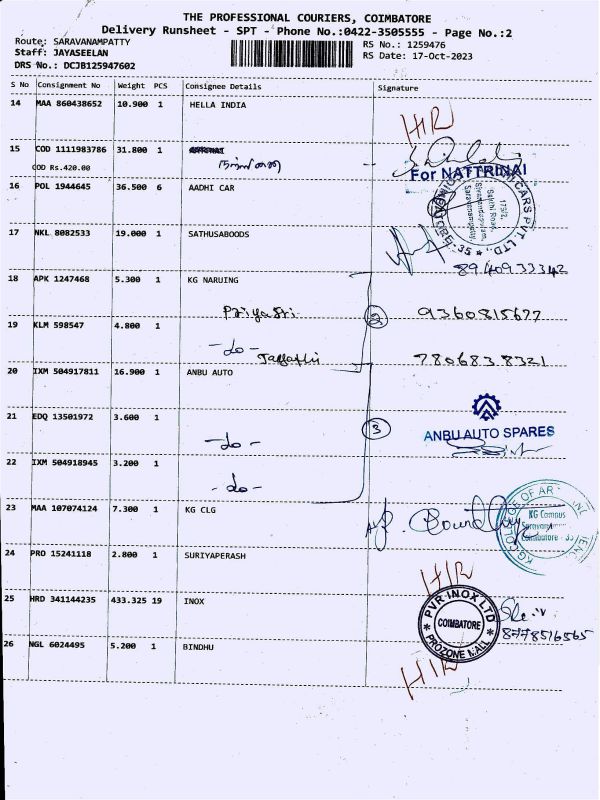 THE PROFESSIONAL COURIERS, COIMBATORE
Delivery Runsheet - SPT - Phone No.:0422-3505555 - Page No.:2
Route: SARAVANAMPATTY
RS No.: 1259476
Staff: JAYASEELAN
RS Date: 17-Oct-2023
DRS No.: DCJB125947602
S No Consignment No Weight PCS Consignee Details Signature
14 MAA 860438652 10.900 1 HELLA INDIA
15 COD 1111983786 31.800 1
COD Rs.420.00
For NATTRINAI
16 POL 1944645 36.500 6 AADHI CAR
CARS PVT. LTD.
173/2,
Sathi Road,
Sivanandapuram,
Saravanampatty
17 NKL 8082533 19.000 1 SATHUSABOODS
8940933342
18 APK 1247468 5.300 1 KG NARUING
Priya Sri 2 9360815677
19 KLM 598547 4.800 1
-do- 7806838321
20 IXM 504917811 16.900 1 ANBU AUTO
21 EDQ 13501972 3.600 1
-do- 3 ANBU AUTO SPARES
22 IXM 504918945 3.200 1
-do-
23 MAA 107074124 7.300 1 KG CLG
KG Campus
Coimbatore - 35
24 PRO 15241118 2.800 1 SURIYAPERASH
25 HRD 341144235 433.325 19 INOX
PVR INOX LTD
COIMBATORE
PROZONE MALL
8778516565
26 NGL 6024495 5.200 1 BINDHU